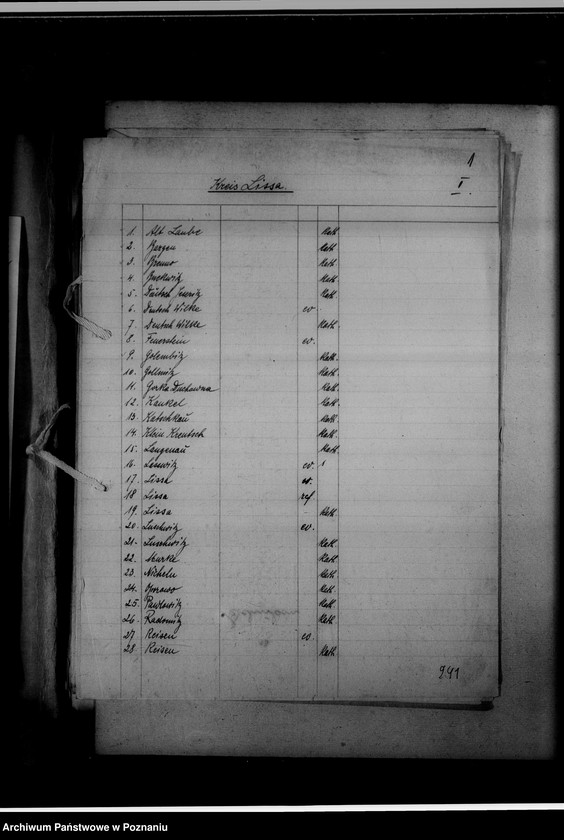 1
I.
Kreis Lissa.
1. Alt Laube Kath.
2. Bargen Kath.
3. Brenno Kath.
4. Kath.
5. Deutsch Kath.
6. Deutsch Wilke ev.
7. Deutsch Wilke Kath.
8. Feuerstein ev.
9. Golembitz Kath.
10. Gollmitz Kath.
11. Gorka Duchowna Kath.
12. Kankel Kath.
13. Katschkau Kath.
14. Klein Kreutsch Kath.
15. Langenau Kath.
16. ev.
17. Lissa ev.
18. Lissa ref
19. Lissa Kath.
20. Luschwitz ev.
21. Luschwitz Kath.
22. Murke Kath.
23. Kath.
24. Oporowo Kath.
25. Pawlowitz Kath.
26. Radomitz Kath.
27. Reisen ev.
28. Reisen Kath.
941
Archiwum Państwowe w Poznaniu